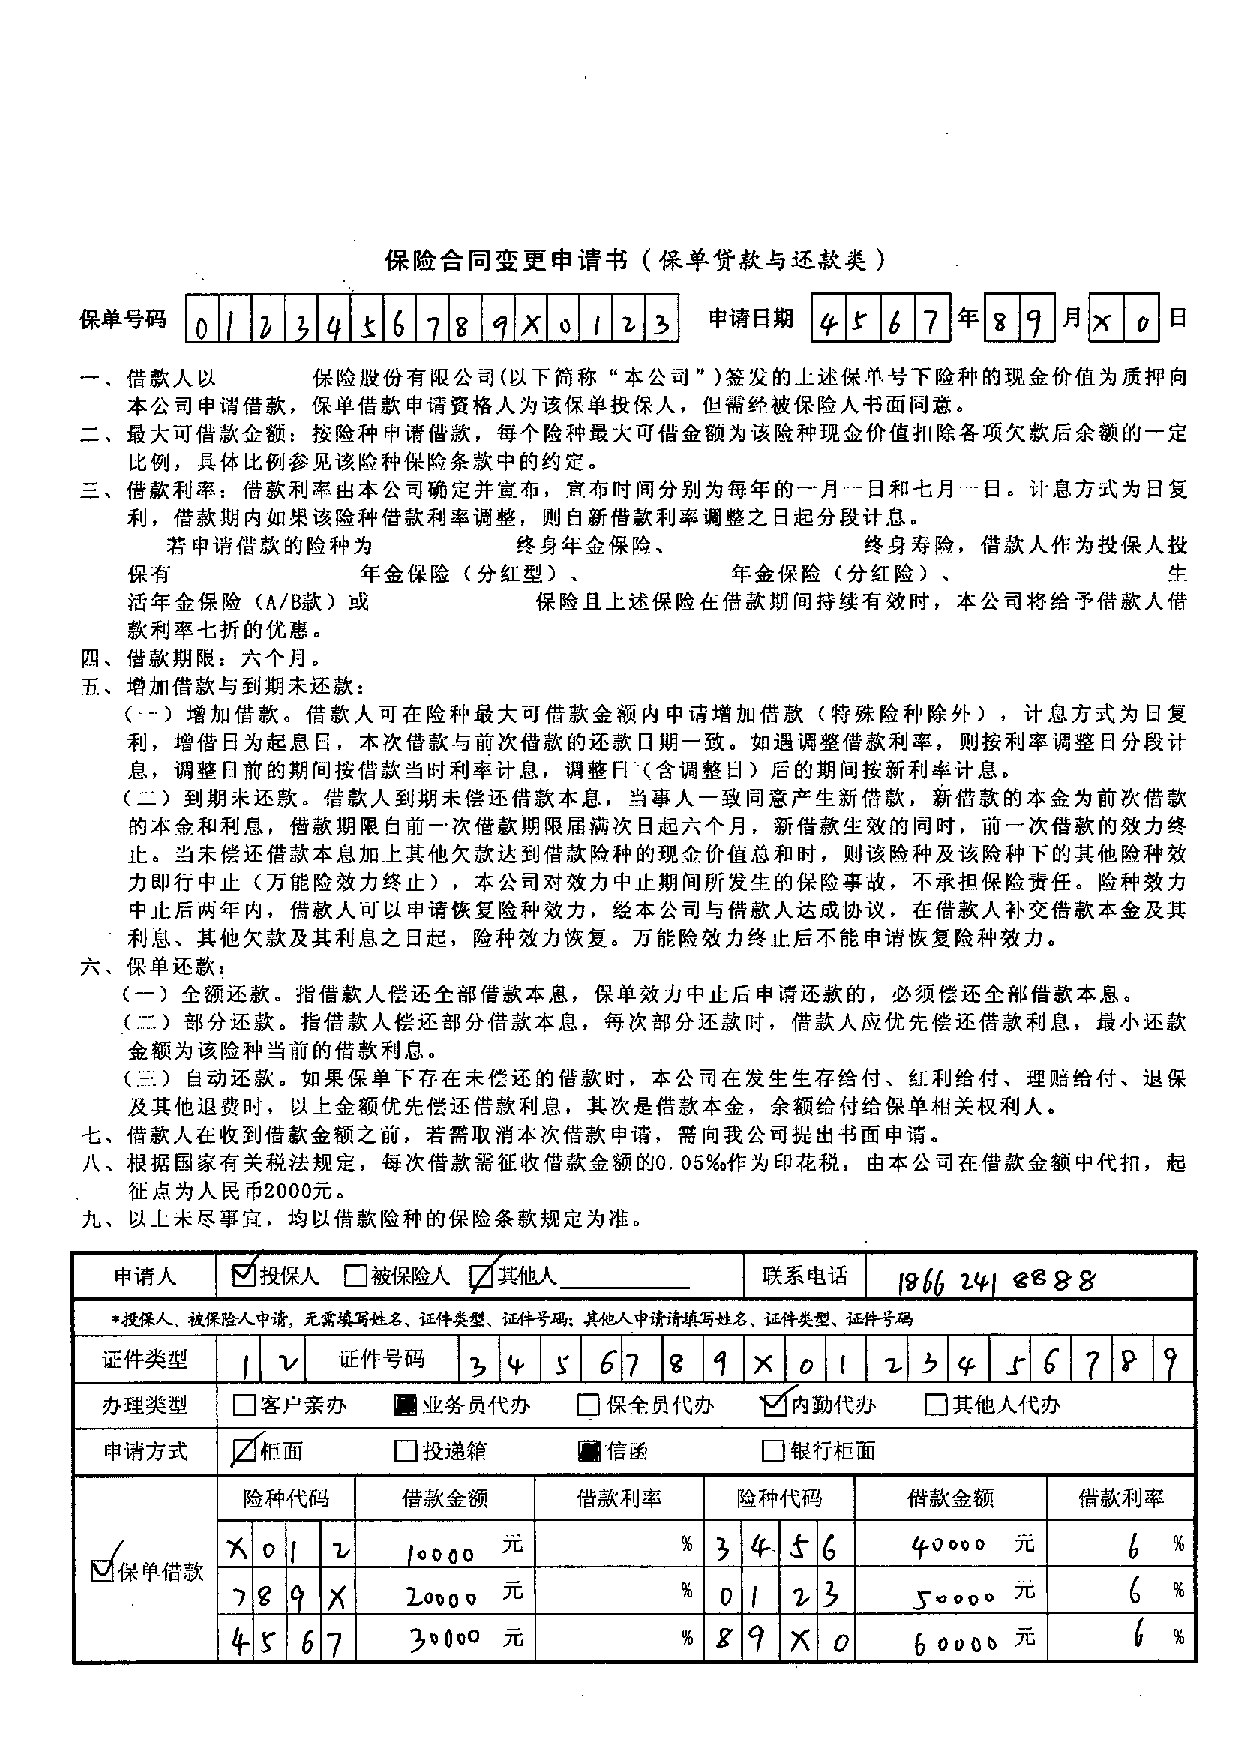 保险合同变更申请书（保单贷款与还款类）
保单号码 0123456789X0123 申请日期 4567年89月X0日
一、借款人以 保险股份有限公司(以下简称“本公司”)签发的上述保单号下险种的现金价值为质押向
本公司申请借款，保单借款申请资格人为该保单投保人，但需经被保险人书面同意。
二、最大可借款金额：按险种申请借款，每个险种最大可借金额为该险种现金价值扣除各项欠款后余额的一定
比例，具体比例参见该险种保险条款中的约定。
三、借款利率：借款利率由本公司确定并宣布，宣布时间分别为每年的一月一日和七月一日。计息方式为日复
利，借款期内如果该险种借款利率调整，则自新借款利率调整之日起分段计息。
若申请借款的险种为 终身年金保险、 终身寿险，借款人作为投保人投
保有 年金保险（分红型）、 年金保险（分红险）、 生
活年金保险（A/B款）或 保险且上述保险在借款期间持续有效时，本公司将给予借款人借
款利率七折的优惠。
四、借款期限：六个月。
五、增加借款与到期未还款：
（一）增加借款。借款人可在险种最大可借款金额内申请增加借款（特殊险种除外），计息方式为日复
利，增借日为起息日，本次借款与前次借款的还款日期一致。如遇调整借款利率，则按利率调整日分段计
息，调整日前的期间按借款当时利率计息，调整日（含调整日）后的期间按新利率计息。
（二）到期未还款。借款人到期未偿还借款本息，当事人一致同意产生新借款，新借款的本金为前次借款
的本金和利息，借款期限自前一次借款期限届满次日起六个月，新借款生效的同时，前一次借款的效力终
止。当未偿还借款本息加上其他欠款达到借款险种的现金价值总和时，则该险种及该险种下的其他险种效
力即行中止（万能险效力终止），本公司对效力中止期间所发生的保险事故，不承担保险责任。险种效力
中止后两年内，借款人可以申请恢复险种效力，经本公司与借款人达成协议，在借款人补交借款本金及其
利息、其他欠款及其利息之日起，险种效力恢复。万能险效力终止后不能申请恢复险种效力。
六、保单还款：
（一）全额还款。指借款人偿还全部借款本息，保单效力中止后申请还款的，必须偿还全部借款本息。
（二）部分还款。指借款人偿还部分借款本息，每次部分还款时，借款人应优先偿还借款利息，最小还款
金额为该险种当前的借款利息。
（三）自动还款。如果保单下存在未偿还的借款时，本公司在发生生存给付、红利给付、理赔给付、退保
及其他退费时，以上金额优先偿还借款利息，其次是借款本金，余额给付给保单相关权利人。
七、借款人在收到借款金额之前，若需取消本次借款申请，需向我公司提出书面申请。
八、根据国家有关税法规定，每次借款需征收借款金额的0.05‰作为印花税，由本公司在借款金额中代扣，起
征点为人民币2000元。
九、以上未尽事宜，均以借款险种的保险条款规定为准。
申请人 ☑投保人 □被保险人 ☑其他人 联系电话 1866 241 8888
*投保人、被保险人申请，无需填写姓名、证件类型、证件号码；其他人申请请填写姓名、证件类型、证件号码
证件类型 12 证件号码 3456789X0123456789
办理类型 □客户亲办 ■业务员代办 □保全员代办 ☑内勤代办 □其他人代办
申请方式 ☑柜面 □投递箱 ■信函 □银行柜面
险种代码 借款金额 借款利率 险种代码 借款金额 借款利率
☑保单借款
X012 10000 元 % 3456 40000 元 6 %
789X 20000 元 % 0123 50000 元 6 %
4567 30000 元 % 89X0 60000 元 6 %